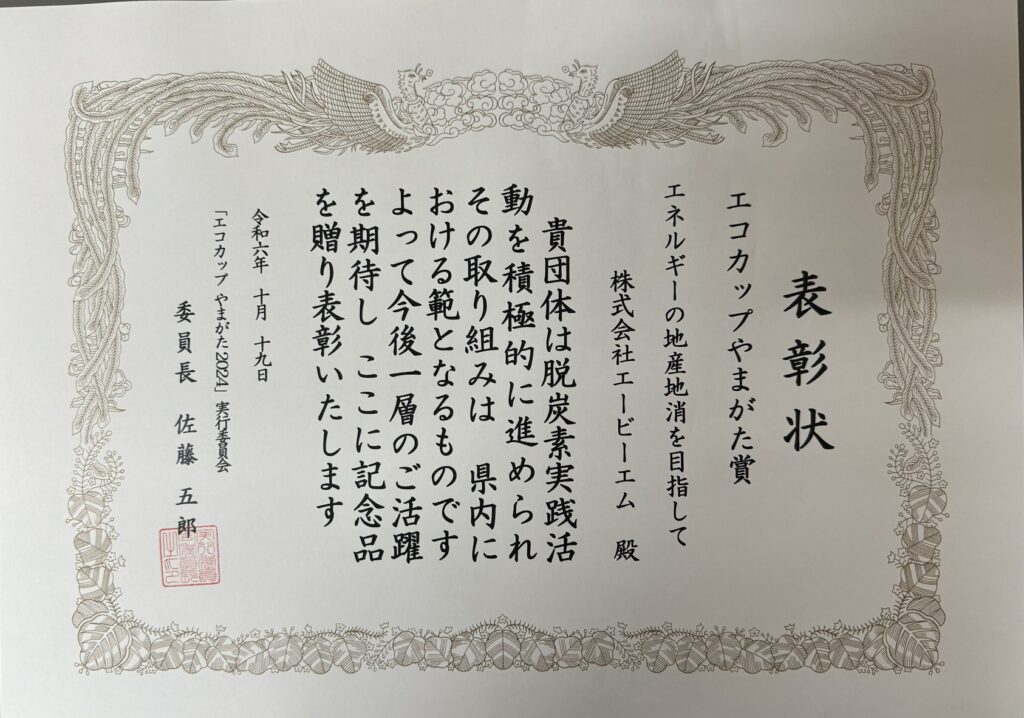 表彰状
エコカップやまがた賞
エネルギーの地産地消を目指して
株式会社エービーエム 殿
貴団体は脱炭素実践活
動を積極的に進められ
その取り組みは 県内に
おける範となるものです
よって今後一層のご活躍
を期待し ここに記念品
を贈り表彰いたします
令和六年 十月 十九日
「エコカップ やまがた2024」実行委員会
委員長 佐藤 五郎